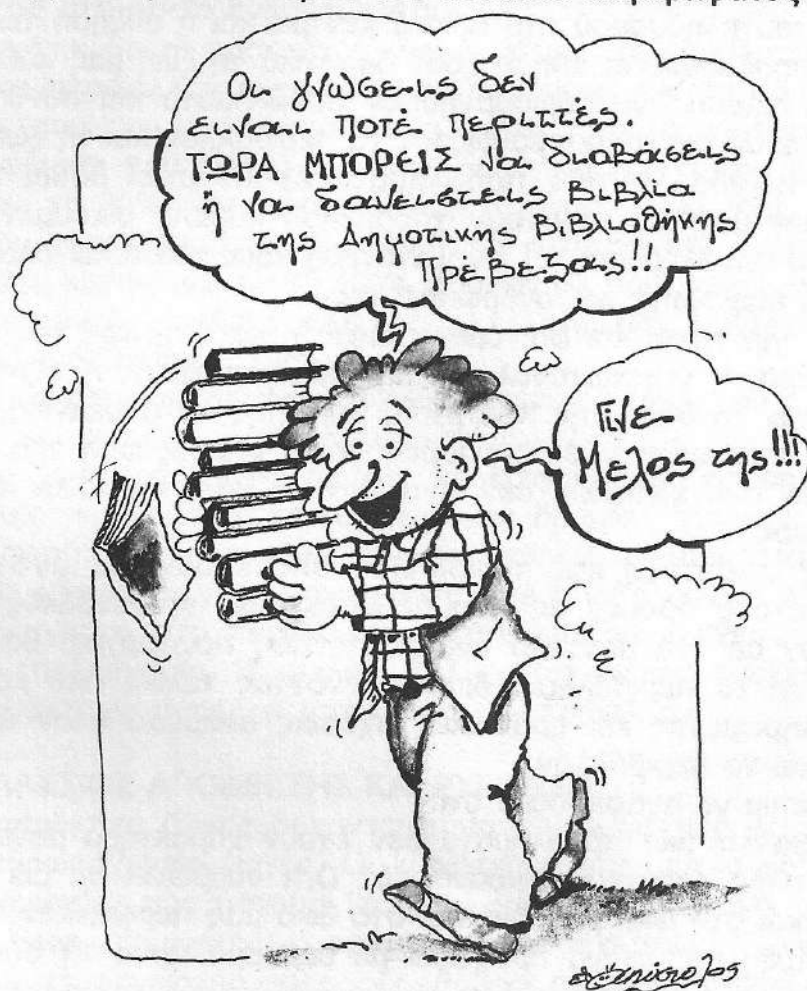 Οι γνώσεις δεν
ειναι ποτέ περιττές.
ΤΩΡΑ ΜΠΟΡΕΙΣ να διαβάσεις
ή να δανειστεις Βιβλία
της Δημοτικης Βιβλιοθήκης
Πρέβεζας!!
Γίνε
Μελος της!!!